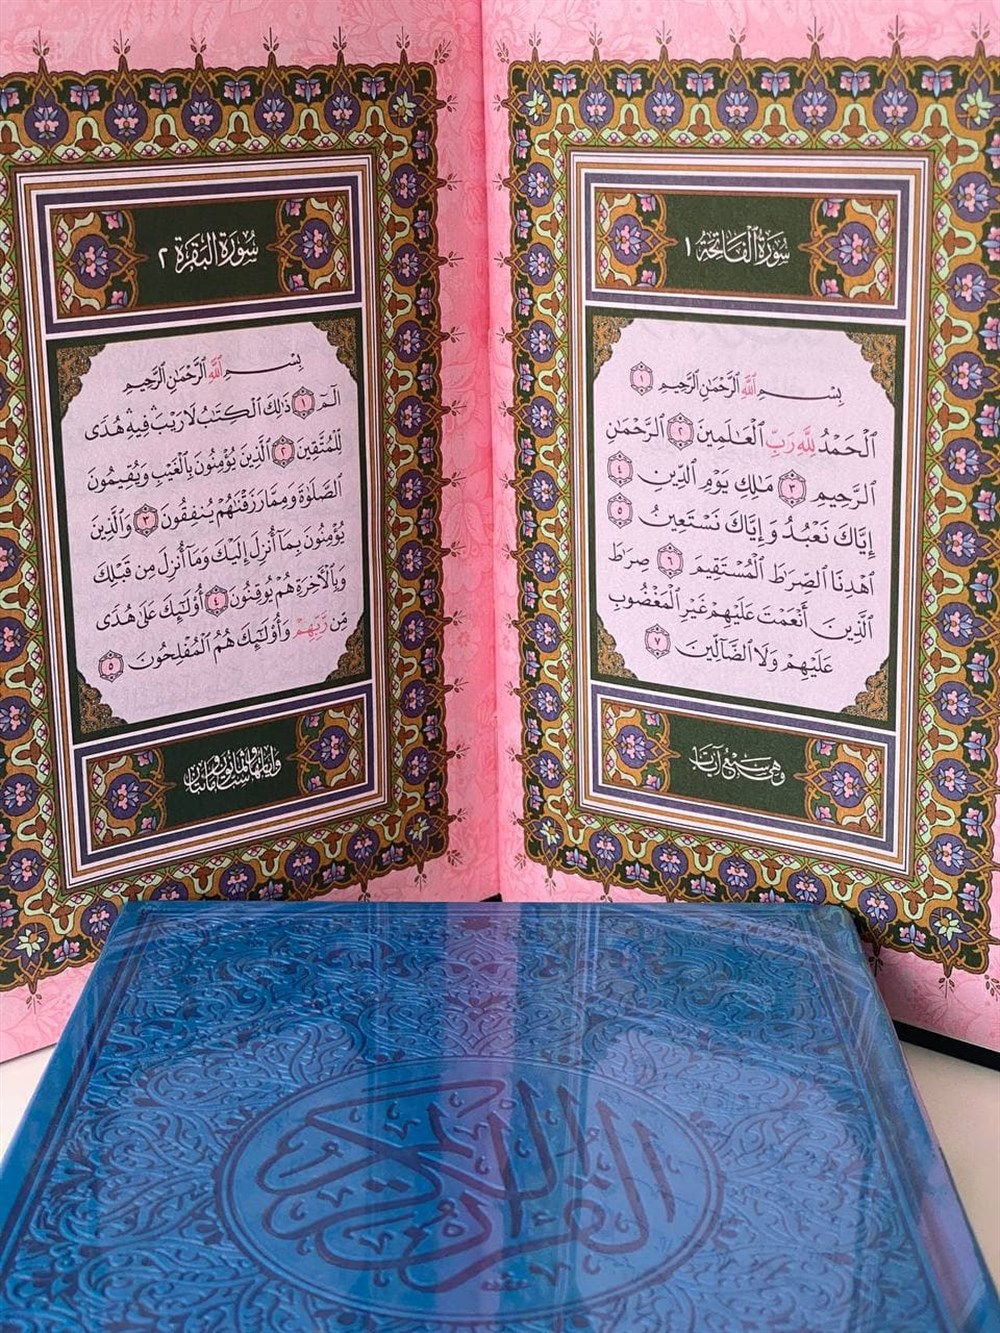 سُورَةُ الْفَاتِحَة ١
بِسْمِ ٱللَّهِ ٱلرَّحْمَٰنِ ٱلرَّحِيمِ ١
ٱلْحَمْدُ لِلَّهِ رَبِّ ٱلْعَٰلَمِينَ ٢ ٱلرَّحْمَٰنِ
ٱلرَّحِيمِ ٣ مَٰلِكِ يَوْمِ ٱلدِّينِ ٤
إِيَّاكَ نَعْبُدُ وَإِيَّاكَ نَسْتَعِينُ ٥
ٱهْدِنَا ٱلصِّرَٰطَ ٱلْمُسْتَقِيمَ ٦ صِرَٰطَ
ٱلَّذِينَ أَنْعَمْتَ عَلَيْهِمْ غَيْرِ ٱلْمَغْضُوبِ
عَلَيْهِمْ وَلَا ٱلضَّآلِّينَ ٧
وَهِيَ سَبْعُ آيَاتٍ
سُورَةُ الْبَقَرَة ٢
بِسْمِ ٱللَّهِ ٱلرَّحْمَٰنِ ٱلرَّحِيمِ
الٓمٓ ١ ذَٰلِكَ ٱلْكِتَٰبُ لَا رَيْبَ فِيهِ هُدًى
لِّلْمُتَّقِينَ ٢ ٱلَّذِينَ يُؤْمِنُونَ بِٱلْغَيْبِ وَيُقِيمُونَ
ٱلصَّلَوٰةَ وَمِمَّا رَزَقْنَٰهُمْ يُنفِقُونَ ٣ وَٱلَّذِينَ
يُؤْمِنُونَ بِمَآ أُنزِلَ إِلَيْكَ وَمَآ أُنزِلَ مِن قَبْلِكَ
وَبِٱلْءَاخِرَةِ هُمْ يُوقِنُونَ ٤ أُو۟لَٰٓئِكَ عَلَىٰ هُدًى
مِّن رَّبِّهِمْ وَأُو۟لَٰٓئِكَ هُمُ ٱلْمُفْلِحُونَ ٥
القرآن الكريم